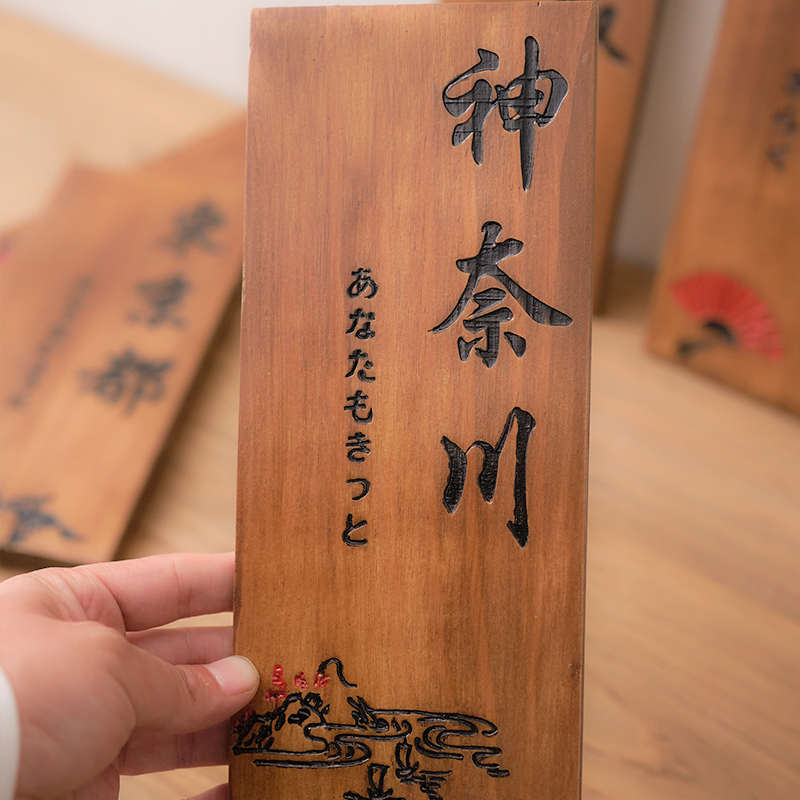 神奈川
あなたもきっと
東京都